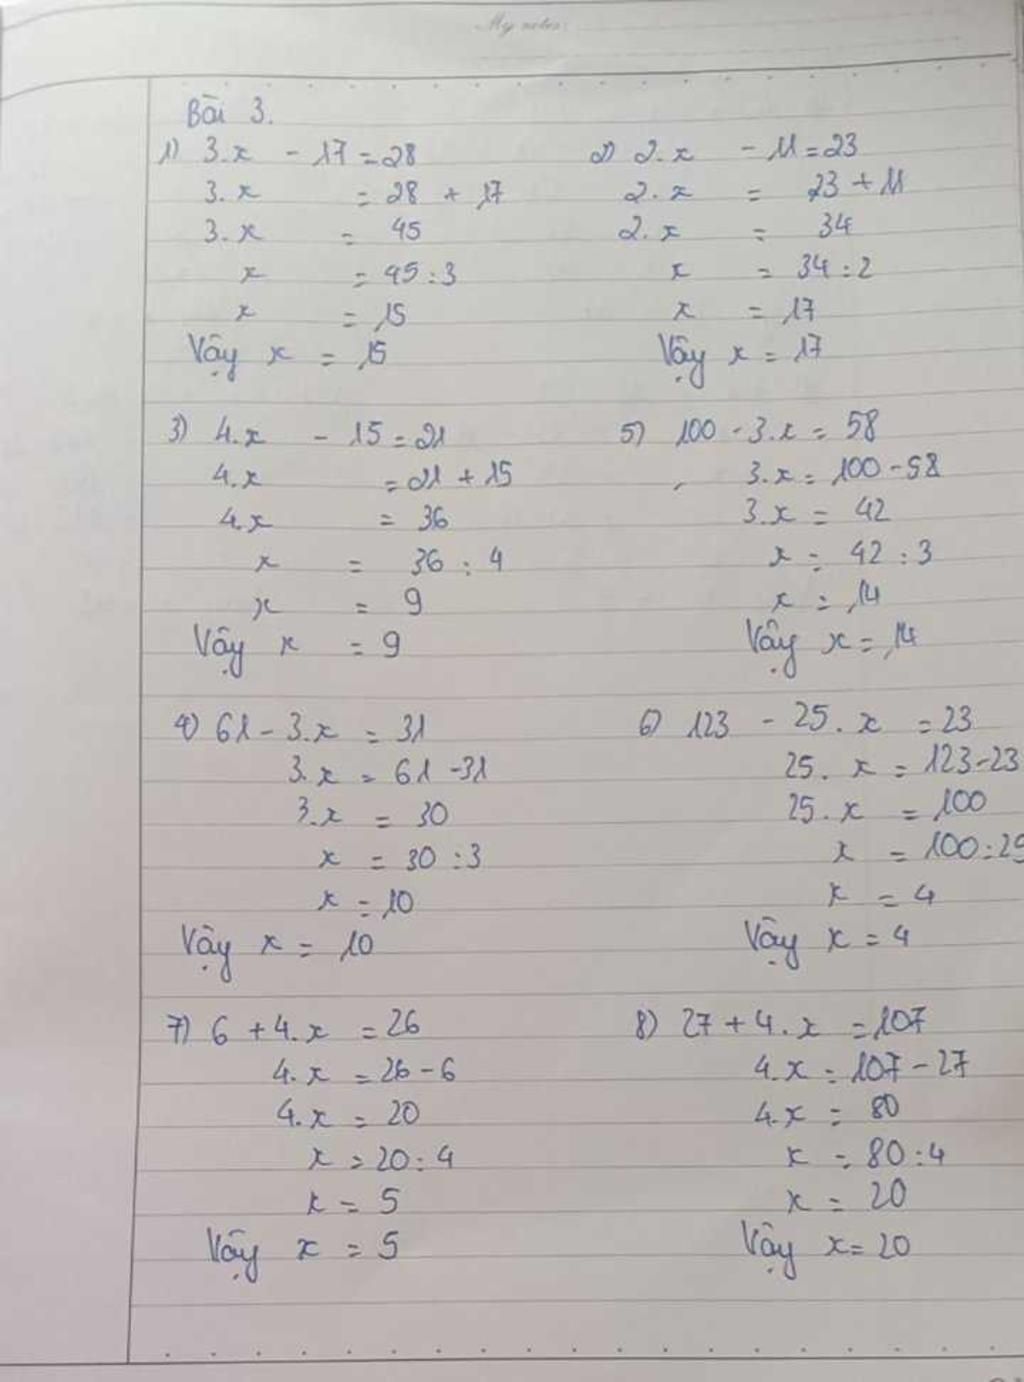 My notes:
Bài 3.
1) 3.x - 17 = 28
3.x = 28 + 17
3.x = 45
x = 45 : 3
x = 15
Vậy x = 15
2) 2.x - 11 = 23
2.x = 23 + 11
2.x = 34
x = 34 : 2
x = 17
Vậy x = 17
3) 4.x - 15 = 21
4.x = 21 + 15
4.x = 36
x = 36 : 4
x = 9
Vậy x = 9
5) 100 - 3.x = 58
3.x = 100 - 58
3.x = 42
x = 42 : 3
x = 14
Vậy x = 14
4) 61 - 3.x = 31
3.x = 61 - 31
3.x = 30
x = 30 : 3
x = 10
Vậy x = 10
6) 123 - 25.x = 23
25.x = 123 - 23
25.x = 100
x = 100 : 25
x = 4
Vậy x = 4
7) 6 + 4.x = 26
4.x = 26 - 6
4.x = 20
x = 20 : 4
x = 5
Vậy x = 5
8) 27 + 4.x = 107
4.x = 107 - 27
4.x = 80
x = 80 : 4
x = 20
Vậy x = 20